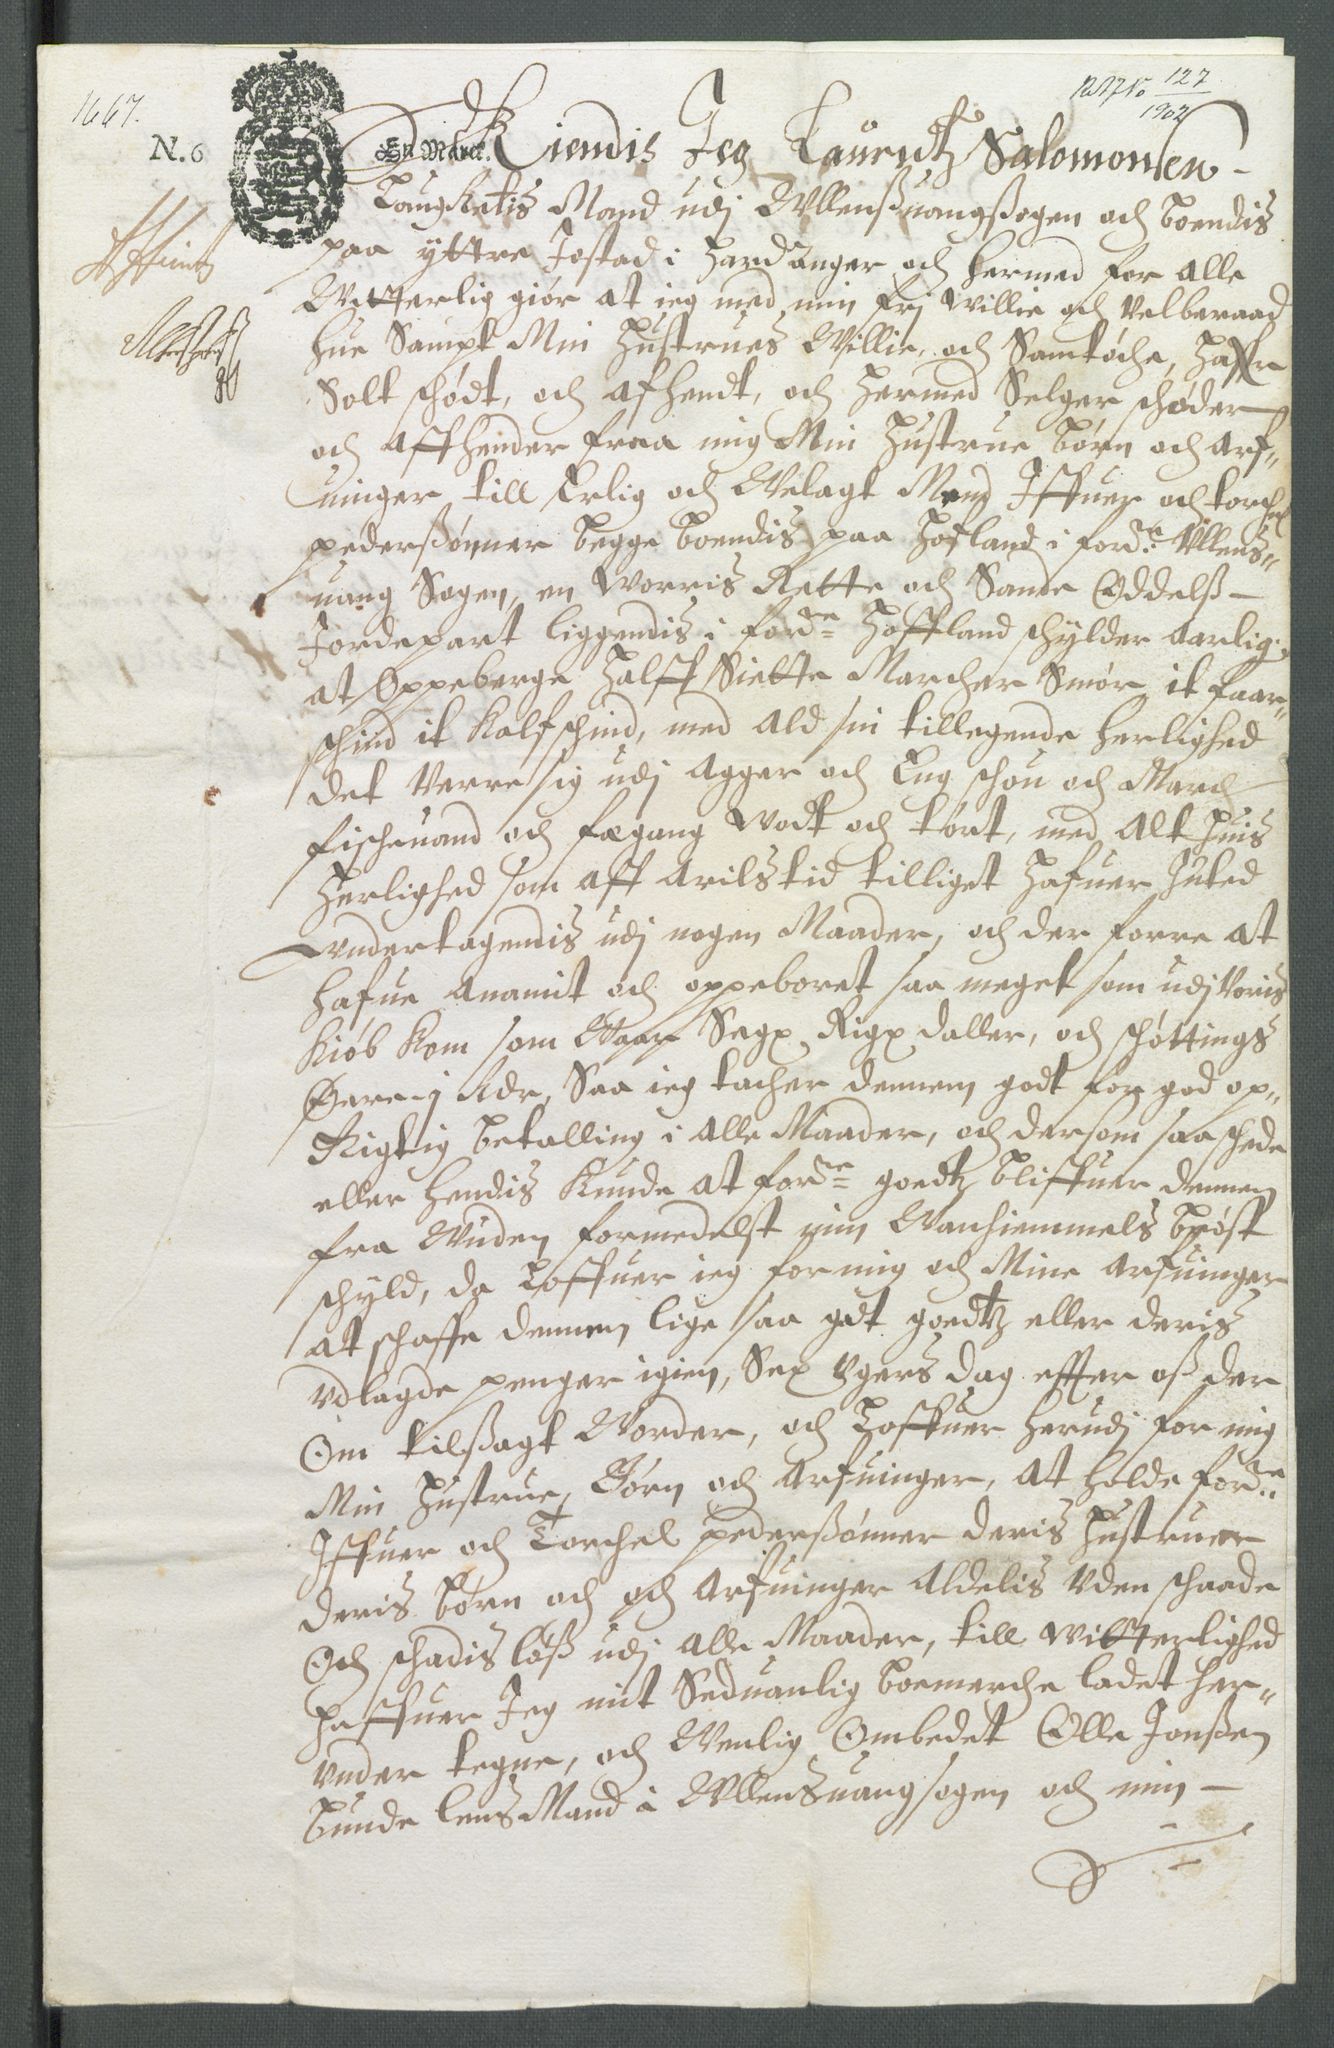 1667.
127
1902
N. 6
En Marck.
Kiendis Jeg Laurentz Salomonsen
Laugrettis Mand udj Ullenßuangßogen och boendis
paa yttre Jostad i Hardanger och hermed for alle
Witterlig giör at ieg med min frj willie och velberaad
hue Sampt Min Hustrues Willie, och Samtöche, Haffr
Solt schödt, och afhendt, och hermed Selger schöder
och affhender fraa mig Min Hustrue börn och arf„
uinger till Erlig och Welagt Mend Iffuer och torchel
pederßönner begge boendis paa Hofland i forde Ullens„
uang Sogen, en Worris Rette och Sande Oddelß
Jordepart liggendis i forde Hoffland schylder aarlig
at Oppeberge Halff Siette Marcher Smör it faar„
schind it Kalfschind, med ald sin tillegende herlighed
det verre sig udj Agger och Eng schou och March
fischeuand och fægang wodt och tört, med alt huis
Herlighed som aff arilstid tilliget hafuer Inted
vndertagendis udj nogen Maader, och der forre at
hafue anamit och oppeboret saa meget som udj voris
Kiöb kom som Waar Segx Rigx daller, och schöttings
Öre j Rdr, Saa ieg tacher dennem godt for god op„
Rigtig betalling i alle Maader, och dersom saa schede
eller hendis Kunde at forde goedtz bliffuer dennem
fra Wuden formedelst min Wanhiemmels bröst
schyld, da Loffuer ieg for mig och Mine Arfuinger
at schaffe dennem lige saa gdt goedtz eller deris
vdlagde penger igien, Sex Ugers dag effter oß der
Om tilßagt Worder, och Loffuer herudj for mig
Min Hustrue, Börn och Arfuinger, at holde forde
Iffuer och Torchel pederßönner deris Hustruer
deris börn och och Arfuinger Aldelis Uden schaade
Och schadislöß udj alle Maader, till Witterlighed
haffuer Jeg mit Seduanlig boemerche ladet her„
vnder tegne, och Wenlig Ombedet Olle Jonßen
bunde lens Mand i Ullensuangsogen och min